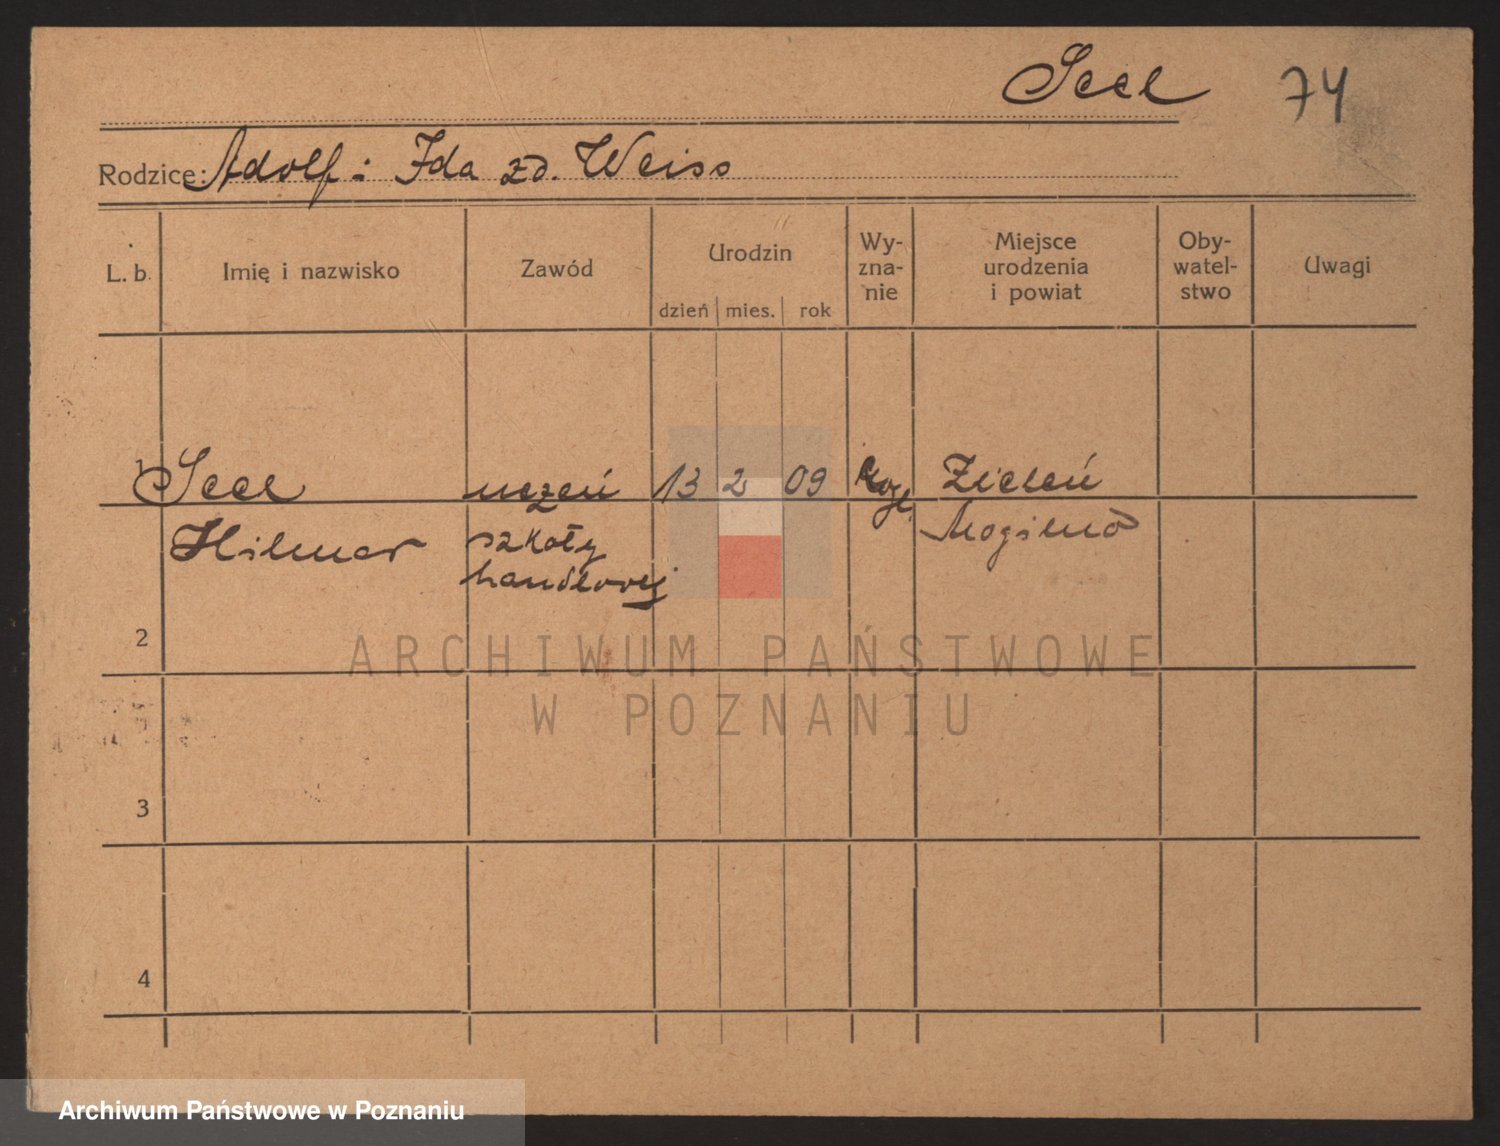 Seel 74
Rodzice: Adolf i Ida zd. Weiss
L. b. Imię i nazwisko Zawód Urodzin Wy-zna-nie Miejsce urodzenia i powiat Oby-watel-stwo Uwagi
dzień mies. rok
1 Seel uczeń 13 2 09 Zieleń
Hilmar szkoły Mogilno
handlowej
2
ARCHIWUM PAŃSTWOWE
W POZNANIU
3
4
Archiwum Państwowe w Poznaniu